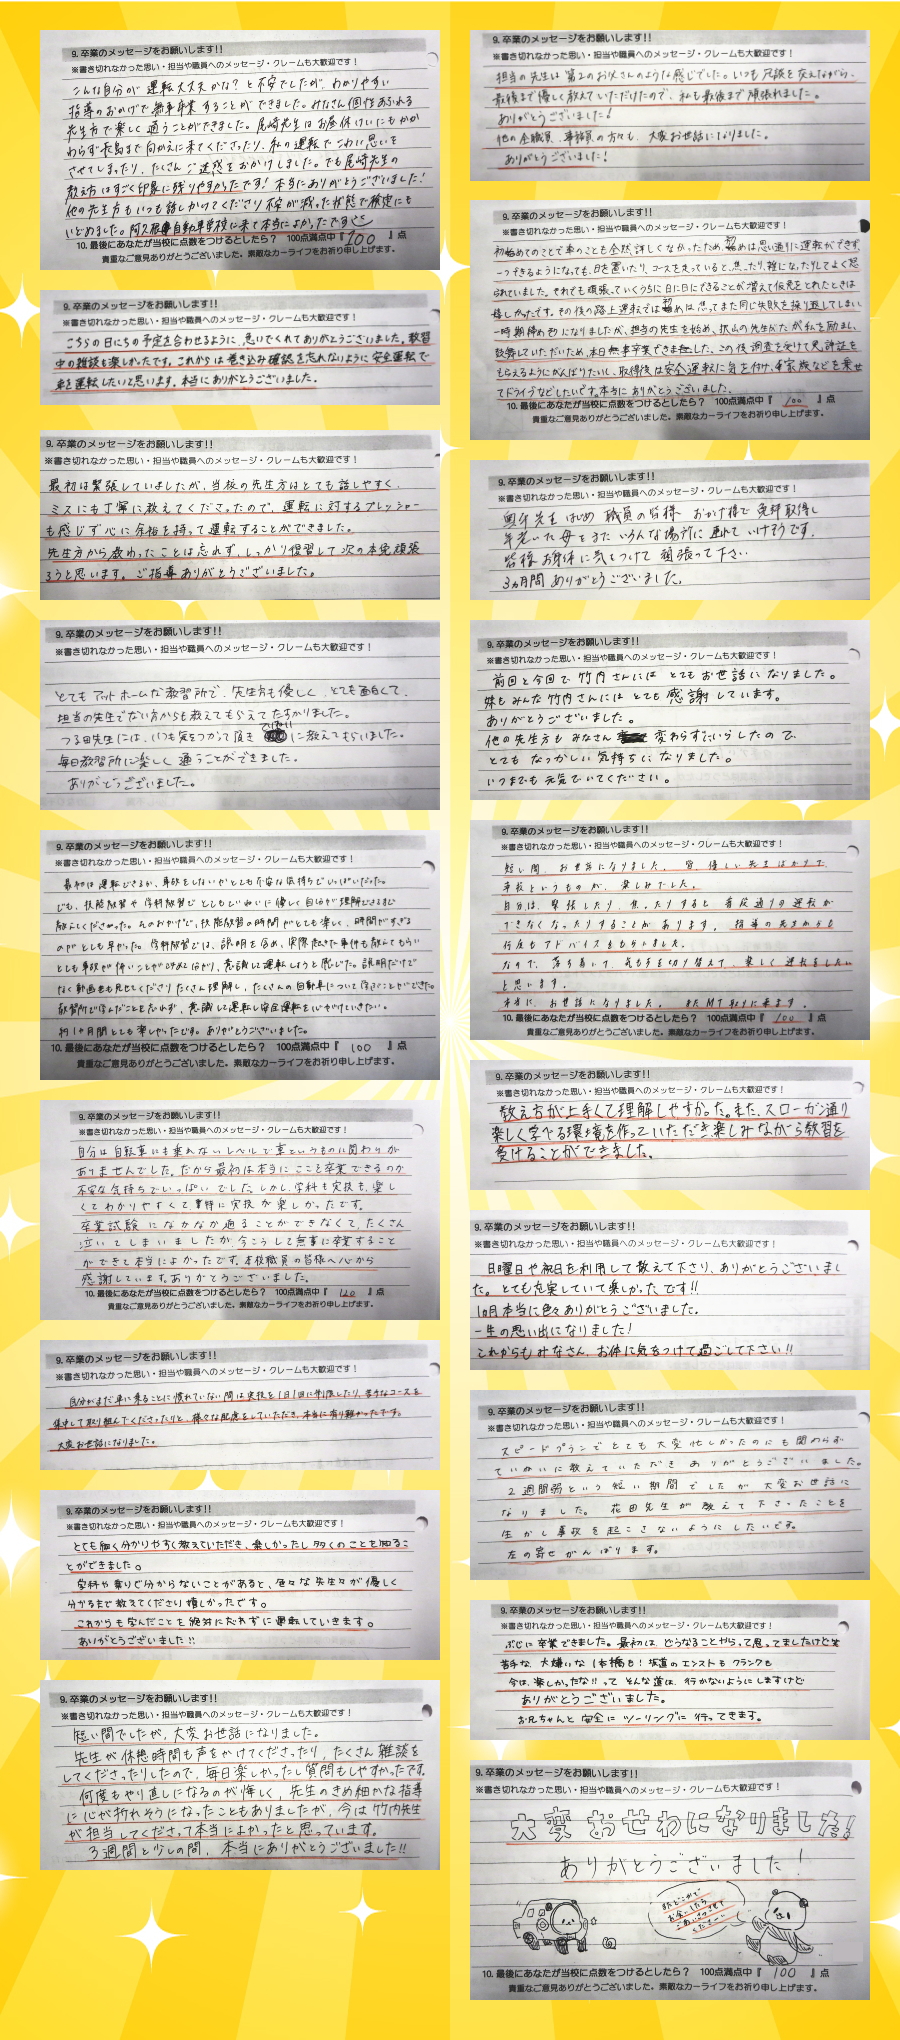 9. 卒業のメッセージをお願いします!!
※書き切れなかった思い・担当や職員へのメッセージ・クレームも大歓迎です!
こんな自分が 運転大丈夫かな？と不安でしたが、わかりやすい
指導のおかげで無事卒業することができました。みなさん個性あふれる
先生方で楽しく通うことができました。尾崎先生はお昼休けいにもかか
わらず 私の運転でこわい思いを
させてしまったり、たくさんご迷惑をおかけしました。でも尾崎先生の
教え方はすごく印象に残りやすかったです！本当にありがとうございました！
他の先生方もいつも話しかけてくださり不安が減った状態で検定にも
いどめました。阿久根自動車学校に来て本当によかったです
10. 最後にあなたが当校に点数をつけるとしたら？ 100点満点中『 100 』点
貴重なご意見ありがとうございました。素敵なカーライフをお祈り申し上げます。
9. 卒業のメッセージをお願いします!!
※書き切れなかった思い・担当や職員へのメッセージ・クレームも大歓迎です!
こちらの日にちの予定を合わせるように、急いでくれてありがとうございました。教習
中の雑談も楽しかったです。これからは巻き込み確認を忘れないように安全運転で
車を運転したいと思います。本当にありがとうございました。
9. 卒業のメッセージをお願いします!!
※書き切れなかった思い・担当や職員へのメッセージ・クレームも大歓迎です!
最初は緊張していましたが、当校の先生方はとても話しやすく、
ミスにも丁寧に教えてくださったので、運転に対するプレッシャー
も感じず心に余裕を持って運転することができました。
先生方から教わったことは忘れず、しっかり復習して次の本免頑張
ろうと思います。ご指導ありがとうございました。
9. 卒業のメッセージをお願いします!!
※書き切れなかった思い・担当や職員へのメッセージ・クレームも大歓迎です!
とてもアットホームな教習所で、先生方も優しく、とても面白くて、
担当の先生でない方からも教えてもらえてたすかりました。
つる田先生には、いつも気をつかって頂き ていねい に教えてもらいました。
毎日教習所に楽しく通うことができました。
ありがとうございました。
9. 卒業のメッセージをお願いします!!
※書き切れなかった思い・担当や職員へのメッセージ・クレームも大歓迎です!
最初は運転できるか、事故をしないかとても不安な気持ちでいっぱいだった。
でも、技能教習や学科教習でとてもていねいに優しく自分が理解できるまで
教えてくださった。そのおかげで、技能教習の時間がとても楽しく、時間がすぎる
のがとても早かった。学科教習では、説明も含め、実際起きた事件も教えてもらい
とても事故が怖いことが改めて分かり、意識して運転しようと感じた。説明だけで
なく動画をも見せてくださりたくさん理解し、たくさんの自動車について学ぶことができた。
教習所で学んだことを忘れず、意識して運転し安全運転を心がけていきたい。
約1ヶ月間とても楽しかったです。ありがとうございました。
10. 最後にあなたが当校に点数をつけるとしたら？ 100点満点中『 100 』点
貴重なご意見ありがとうございました。素敵なカーライフをお祈り申し上げます。
9. 卒業のメッセージをお願いします!!
※書き切れなかった思い・担当や職員へのメッセージ・クレームも大歓迎です!
自分は自転車にも乗れないレベルで車というものに関わりが
ありませんでした。だから最初は本当にここを卒業できるのか
不安な気持ちでいっぱいでした。しかし、学科も実技も、楽し
くてわかりやすくて、特に実技が楽しかったです。
卒業試験になかなか通ることができなくて、たくさん
泣いてしまいましたが、今こうして無事に卒業すること
ができて本当によかったです。本校職員の皆様へ心から
感謝しています。ありがとうございました。
10. 最後にあなたが当校に点数をつけるとしたら？ 100点満点中『 120 』点
貴重なご意見ありがとうございました。素敵なカーライフをお祈り申し上げます。
9. 卒業のメッセージをお願いします!!
※書き切れなかった思い・担当や職員へのメッセージ・クレームも大歓迎です!
自分がまだ車に乗ることに慣れていない間は実技を1日1回に制限したり、苦手なコースを
集中して取り組んでくださったりと、様々な配慮をしていただき、本当に有り難かったです。
大変お世話になりました。
9. 卒業のメッセージをお願いします!!
※書き切れなかった思い・担当や職員へのメッセージ・クレームも大歓迎です!
とても細く分かりやすく教えていただき、楽しかったし多くのことを知るこ
とができました。
学科や乗りで分からないことがあると、色々な先生々が優しく
分かるまで教えてくださり嬉しかったです。
これからも学んだことを絶対に忘れずに運転していきます。
ありがとうございました!!
9. 卒業のメッセージをお願いします!!
※書き切れなかった思い・担当や職員へのメッセージ・クレームも大歓迎です!
短い間でしたが、大変お世話になりました。
先生が休憩時間も声をかけてくださったり、たくさん雑談を
してくださったりしたので、毎日楽しかったし質問もしやすかったです。
何度もやり直しになるのが悔しく、先生のきめ細かな指導
に心が折れそうになったこともありましたが、今は竹内先生
が担当してくださって本当によかったと思っています。
3週間と少しの間、本当にありがとうございました!!
9. 卒業のメッセージをお願いします!!
※書き切れなかった思い・担当や職員へのメッセージ・クレームも大歓迎です!
担当の先生は第2のお父さんのような感じでした。いつも冗談を交えながら、
最後まで優しく教えていただけたので、私も最後まで頑張れました。
ありがとうございました!
他の全職員、事務員の方々も、大変お世話になりました。
ありがとうございました!
9. 卒業のメッセージをお願いします!!
※書き切れなかった思い・担当や職員へのメッセージ・クレームも大歓迎です!
初めてのことで車のことも全然詳しくなかったため、初めは思い通りに運転ができず、
一つできるようになっても、日を置いたり、コースを走っていると焦ったり、雑になったりしてよく怒
られていました。それでも頑張っていくうちに日に日にできることが増えて仮免をとれたときは
嬉しかったです。その後の路上運転では初めは焦ってまた同じ失敗を繰り返してしまい
一時期諦めそうになりましたが、担当の先生を始め、沢山の先生がたが私を励まし、
鼓舞していただいため、本日無事卒業できました。この後、調査を受けて免許証を
もらえるようにがんばりたいし、取得後は安全運転に気を付け、家族などを乗せ
てドライブなどしたいです。本当にありがとうございました。
10. 最後にあなたが当校に点数をつけるとしたら？ 100点満点中『 100 』点
貴重なご意見ありがとうございました。素敵なカーライフをお祈り申し上げます。
9. 卒業のメッセージをお願いします!!
※書き切れなかった思い・担当や職員へのメッセージ・クレームも大歓迎です!
奥平先生はじめ 職員の皆様 おかげ様で免許取得し
年老いた母をまたいろんな場所に連れていけそうです。
皆様お身体に気をつけて頑張って下さい
3ヵ月間ありがとうございました。
9. 卒業のメッセージをお願いします!!
※書き切れなかった思い・担当や職員へのメッセージ・クレームも大歓迎です!
前回と今回で竹内さんにはとてもお世話になりました。
妹もみんな竹内さんにはとても感謝しています。
ありがとうございました。
他の先生方もみなさん 変わらずにいらしたので、
とてもなつかしい気持ちになりました。
いつまでも元気でいてください。
9. 卒業のメッセージをお願いします!!
※書き切れなかった思い・担当や職員へのメッセージ・クレームも大歓迎です!
短い間、お世話になりました。皆、優しい先生ばかりで、
学校というものが、楽しみでした。
自分は、緊張したり、焦ったりすると普段通りの運転が
できなくなったりすることがあります。指導の先生からも
何度もアドバイスをもらいました。
なので、落ち着いて、気もちを切り替えて、楽しく運転をしたい
と思います。
本当に、お世話になりました。またMT取りに来ます。
10. 最後にあなたが当校に点数をつけるとしたら？ 100点満点中『 100 』点
貴重なご意見ありがとうございました。素敵なカーライフをお祈り申し上げます。
9. 卒業のメッセージをお願いします!!
※書き切れなかった思い・担当や職員へのメッセージ・クレームも大歓迎です!
教え方が上手くて理解しやすかった。また、スローガン通り
楽しく学べる環境を作っていただき楽しみながら教習を
受けることができました。
9. 卒業のメッセージをお願いします!!
※書き切れなかった思い・担当や職員へのメッセージ・クレームも大歓迎です!
日曜日や祝日を利用して教えて下さり、ありがとうございまし
た。とても充実していて楽しかったです!!
1ヵ月本当に色々ありがとうございました。
一生の思い出になりました!
これからもみなさん、お体に気をつけて過ごして下さい!!
9. 卒業のメッセージをお願いします!!
※書き切れなかった思い・担当や職員へのメッセージ・クレームも大歓迎です!
スピードプランでとても大変忙しかったのにも関わらず
ていねいに教えていただきありがとうございました。
2週間弱という短い期間でしたが大変お世話に
なりました。花田先生が教えて下さったことを
生かし事故を起こさないようにしたいです。
左の寄せがんばります。
9. 卒業のメッセージをお願いします!!
※書き切れなかった思い・担当や職員へのメッセージ・クレームも大歓迎です!
ぶじに卒業できました。最初は、どうなることやらって思ってましたけど笑
苦手な、大嫌いな1本橋も!坂道のエンストもクランクも
今は、楽しかったな!!って そんな道は、行かないようにしますけど
ありがとうございました。
お兄ちゃんと安全にツーリングに行ってきます。
9. 卒業のメッセージをお願いします!!
※書き切れなかった思い・担当や職員へのメッセージ・クレームも大歓迎です!
大変おせわになりました!
ありがとうございました!
またどこかで
お会いしたら
ごあいさつさせて
ください
10. 最後にあなたが当校に点数をつけるとしたら？ 100点満点中『 100 』点
貴重なご意見ありがとうございました。素敵なカーライフをお祈り申し上げます。